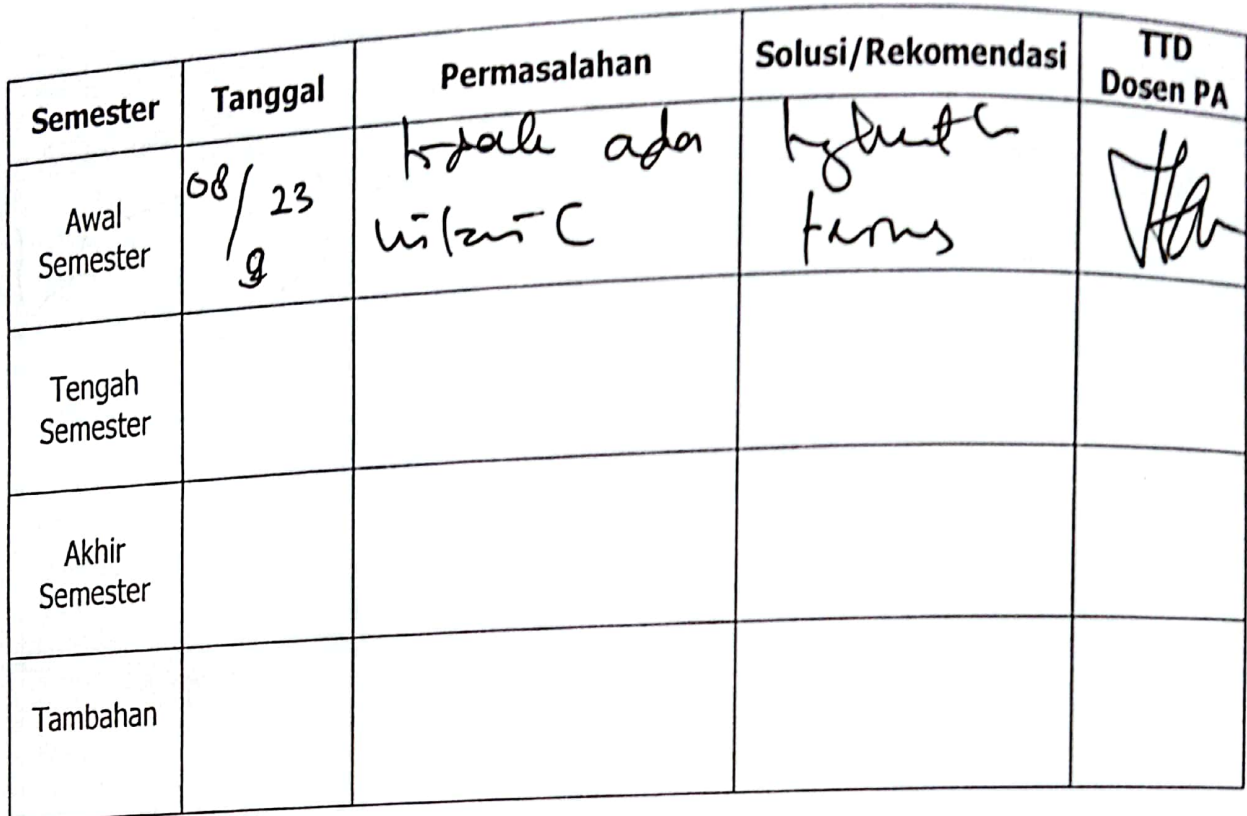 Semester Tanggal Permasalahan Solusi/Rekomendasi TTD
Dosen PA
Awal
Semester
08/23
9
tidak ada
nilai C
terus
Tengah
Semester
Akhir
Semester
Tambahan